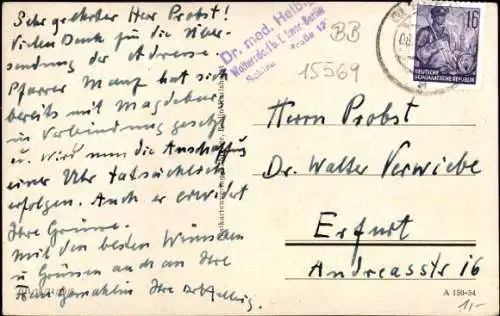 Sehr geehrter Herr Probst!
Vielen Dank für die Über-
sendung der Adresse.
Pfarrer Manz hat sich
bereits mit Magdeburg
in Verbindung gesetzt
u. wird nun die Anschaffung
einer Uhr tatsächlich
erfolgen. Auch er erwidert
Ihre Grüsse.
Mit den besten Wünschen
u. Grüssen auch an Ihre
Frau Gemahlin Ihr
Dr. med. Helbig
Woltersdorf b. Erkner-Berlin
BB
15569
16
DEUTSCHE
DEMOKRATISCHE REPUBLIK
Herrn Probst
Dr. Walter Verwiebe
Erfurt
Andreasstr 16
A 150-54
1,-